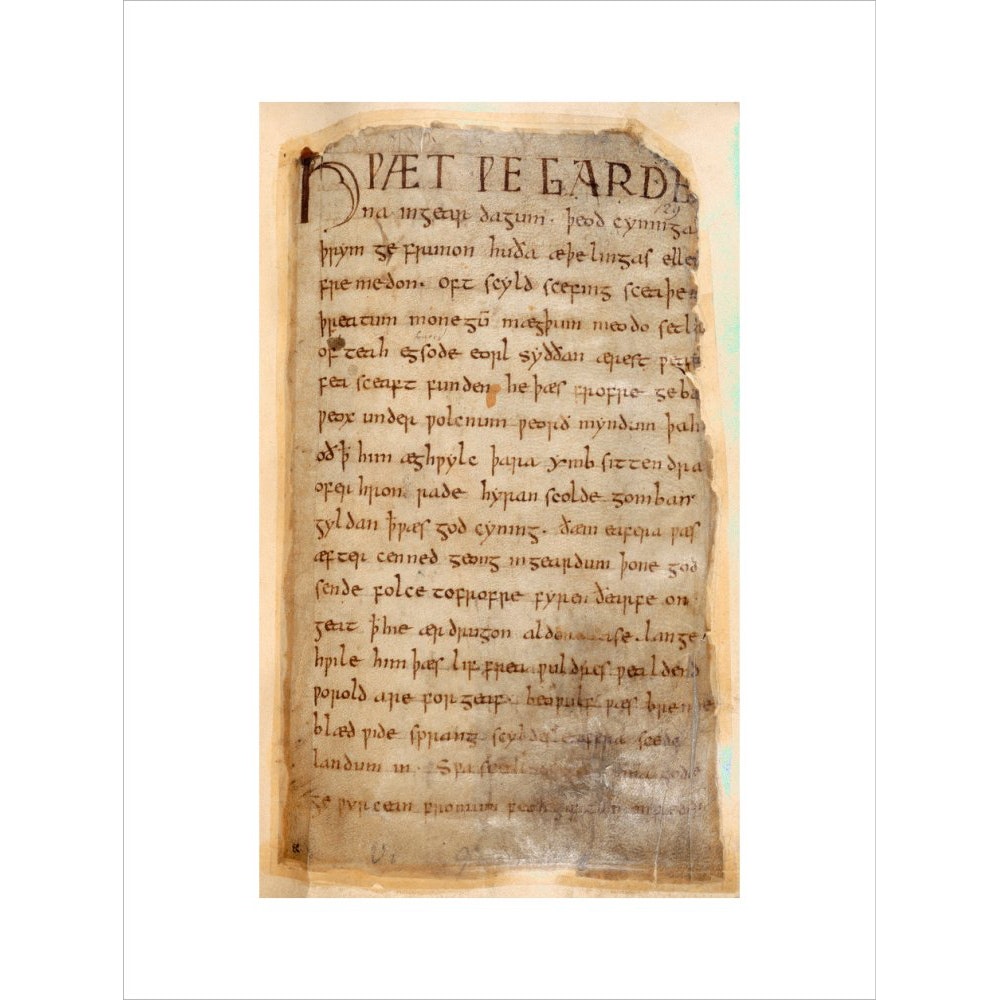 HǷÆT ǷE GARDE
na ingear dagum. þeod cyninga
þrym ge frunon huða æþelingas elle
fremedon. oft scyld scefing sceaþe
þreatum monegū mægþum meodo setla
of teah egsode eorl syððan ærest ƿear
fea sceaft funden he þæs frofre geba
ƿeox under ƿolcnum ƿeorð myndum þah
oð ꝥ him æghƿylc þara ymb sittendra
ofer hron rade hyran scolde gomban
gyldan ꝥ ƿæs god cyning. ðæm eafera ƿæs
æfter cenned geong in geardum þone god
sende folce tofrofre fyren ðearfe on
geat ꝥ hie ær drugon aldor ase. lange
hƿile him þæs lif frea ƿuldres ƿealdend
ƿorold are forgeaf. beoƿulf ƿæs breme
blæd ƿide sprang scyldes eafera scede
landum in. Sƿa sceal ma gode
ge ƿyrcean fromum feoh giftum on fæder